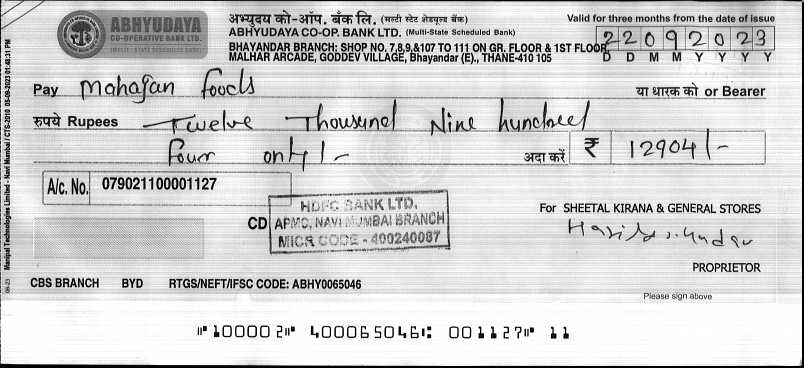 ABHYUDAYA
CO-OPERATIVE BANK LTD.
(MULTI-STATE SCHEDULED BANK)
अभ्युदय को-ऑप. बँक लि. (मल्टी स्टेट शेड्यूल्ड बँक)
ABHYUDAYA CO-OP. BANK LTD. (Multi-State Scheduled Bank)
BHAYANDAR BRANCH: SHOP NO. 7,8,9,&107 TO 111 ON GR. FLOOR & 1ST FLOOR,
MALHAR ARCADE, GODDEV VILLAGE, Bhayandar (E)., THANE-410 105
Valid for three months from the date of issue
22092023
D D M M Y Y Y Y
Pay Mahajan foods या धारक को or Bearer
रुपये Rupees Twelve Thousand Nine hundred
four only/- अदा करें ₹ 12904/-
A/c. No. 079021100001127
HDFC BANK LTD.
CD APMC, NAVI MUMBAI BRANCH
MICR CODE - 400240087
For SHEETAL KIRANA & GENERAL STORES
PROPRIETOR
CBS BRANCH BYD RTGS/NEFT/IFSC CODE: ABHY0065046
Please sign above
⑈100002⑈ 400065046⑆ 001127⑈ 11
Manipal Technologies Limited - Navi Mumbai / CTS-2010 05-09-2023 01:48:31 PM